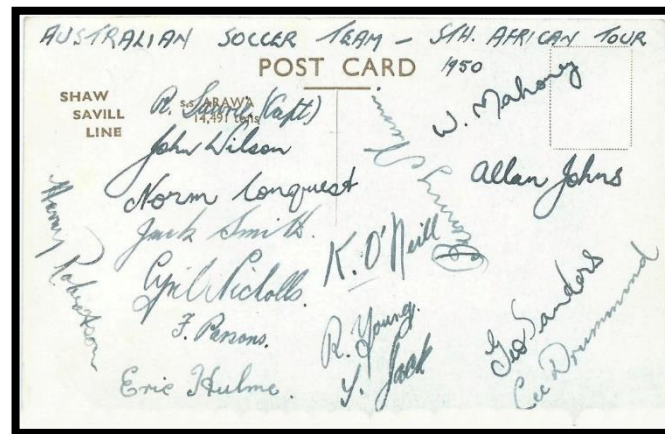 AUSTRALIAN SOCCER TEAM - STH. AFRICAN TOUR
1950
POST CARD
SHAW
SAVILL
LINE
s.s. ARAWA
14,491 tons
R. (Capt)
John Wilson
Norm Conquest
Jack Smith.
Cyril Nicholls.
F. Parsons.
Eric Hulme.
Harry Robertson
K. O'Neill
R. Young.
Y. Jack
W. Mahoney
Allan Johns
Geo Sanders
Cec Drummond